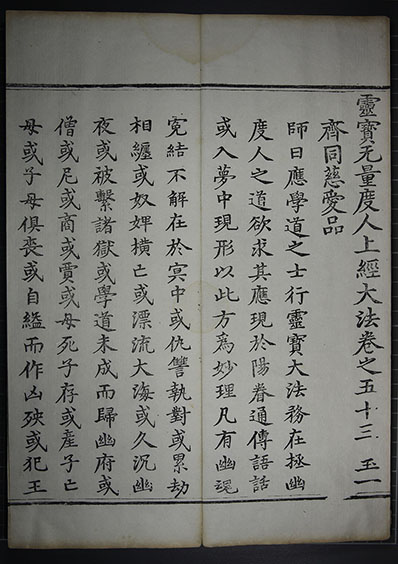 靈寶无量度人上經大法卷之五十三 玉一
齊同慈愛品
師曰應學道之士行靈寶大法務在拯幽
度人之道欲求其應現於陽眷通傳語話
或入夢中現形以此方為妙理凡有幽魂
寃結不解在於冥中或仇讐執對或累劫
相纏或奴婢橫亡或漂流大海或久沉幽
夜或被繫諸獄或學道未成而歸幽府或
僧或尼或商或賈或母死子存或產子亡
母或子母俱喪或自縊而作凶殃或犯王